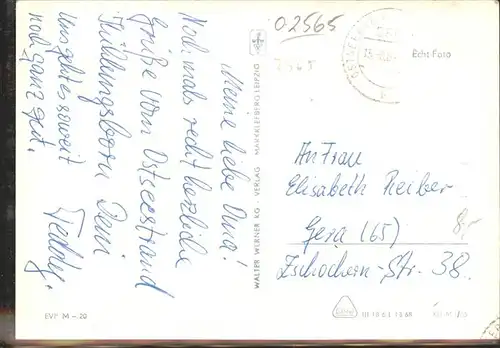 Meine liebe Oma!
Noch mals recht herzliche
Grüße vom Ostseestrand
Kühlungsborn Dein
Teddy.
Uns geht es soweit
noch ganz gut.
02565
Echt-Foto
WALTER WERNER KG · VERLAG · MARKKLEEBERG-LEIPZIG
An Frau
Elisabeth Reiber
Gera (65)
Zschochern-Str. 38
8,-
EVP M -.20